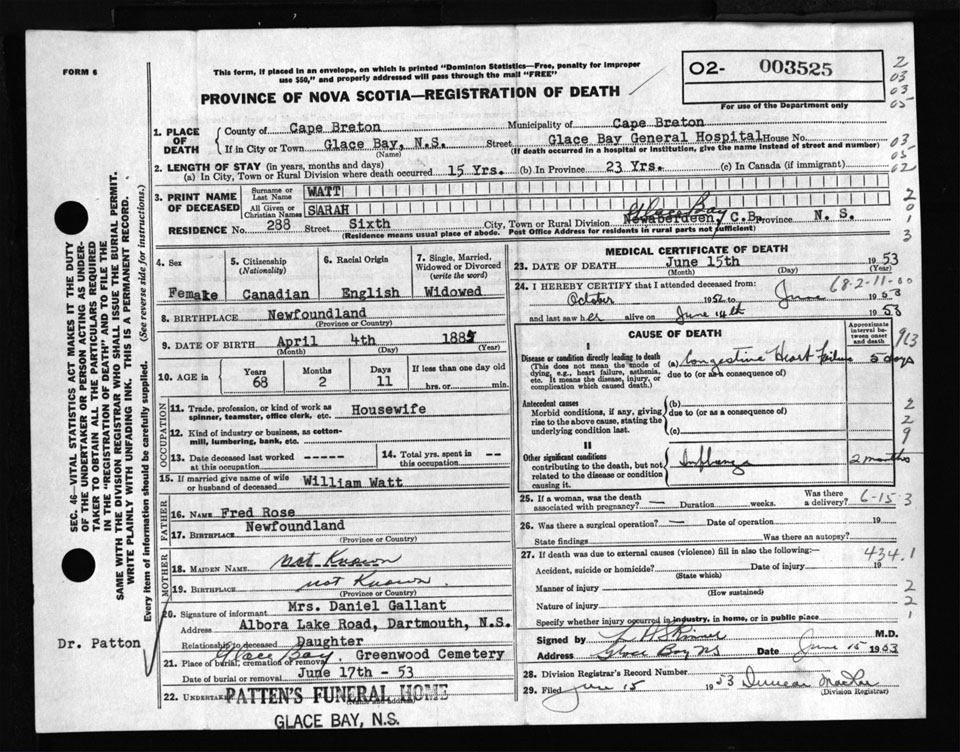 FORM 6
This form, if placed in an envelope, on which is printed "Dominion Statistics—Free, penalty for improper
use $50," and properly addressed will pass through the mail "FREE"
PROVINCE OF NOVA SCOTIA—REGISTRATION OF DEATH
O2- 003525
For use of the Department only
2
03
03
05
03
05
02
2
0
1
3
SEC. 46—VITAL STATISTICS ACT MAKES IT THE DUTY
OF THE UNDERTAKER OR PERSON ACTING AS UNDER-
TAKER TO OBTAIN ALL THE PARTICULARS REQUIRED
IN THE "REGISTRATION OF DEATH" AND TO FILE THE
SAME WITH THE DIVISION REGISTRAR WHO SHALL ISSUE THE BURIAL PERMIT.
WRITE PLAINLY WITH UNFADING INK. THIS IS A PERMANENT RECORD.
Every item of information should be carefully supplied. (See reverse side for instructions.)
1. PLACE OF DEATH
County of Cape Breton Municipality of Cape Breton
If in City or Town Glace Bay, N.S. Street Glace Bay General Hospital House No.
(Name) (If death occurred in a hospital or institution, give the name instead of street and number)
2. LENGTH OF STAY (in years, months and days)
(a) In City, Town or Rural Division where death occurred 15 Yrs. (b) In Province 23 Yrs. (c) In Canada (if immigrant)
3. PRINT NAME OF DECEASED
Surname or Last Name WATT
All Given or Christian Names SARAH
Glace Bay
RESIDENCE No. 288 Street Sixth City, Town or Rural Division Newaberdeen, C.B. Province N. S.
(Residence means usual place of abode. Post Office Address for residents in rural parts not sufficient)
4. Sex
Female
5. Citizenship (Nationality)
Canadian
6. Racial Origin
English
7. Single, Married, Widowed or Divorced (write the word)
Widowed
8. BIRTHPLACE Newfoundland
(Province or Country)
9. DATE OF BIRTH April 4th 1885
(Month) (Day) (Year)
10. AGE in Years Months Days If less than one day old
68 2 11 hrs. or min.
OCCUPATION
11. Trade, profession, or kind of work as spinner, teamster, office clerk, etc. Housewife
12. Kind of industry or business, as cotton-mill, lumbering, bank, etc.
13. Date deceased last worked at this occupation -----
14. Total yrs. spent in this occupation --
15. If married give name of wife or husband of deceased William Watt
FATHER
16. NAME Fred Rose
17. BIRTHPLACE Newfoundland
(Province or Country)
MOTHER
18. MAIDEN NAME not Known
19. BIRTHPLACE not Known
(Province or Country)
20. Signature of informant Mrs. Daniel Gallant
Address Albora Lake Road, Dartmouth, N.S.
Relationship to deceased Daughter
Dr. Patton
21. Place of burial, cremation or removal Glace Bay. Greenwood Cemetery
Date of burial or removal June 17th - 53
22. Undertaker PATTEN'S FUNERAL HOME
(Name and address)
GLACE BAY, N.S.
MEDICAL CERTIFICATE OF DEATH
23. DATE OF DEATH June 15th 1953
(Month) (Day) (Year)
68-2-11-00
24. I HEREBY CERTIFY that I attended deceased from:
October 1952 to June 1953
and last saw her alive on June 14th 1953
CAUSE OF DEATH
Approximate interval between onset and death
963
I
Disease or condition directly leading to death (a) Congestive Heart Failure 5 days
(This does not mean the mode of dying, e.g., heart failure, asthenia, etc. It means the disease, injury, or complication which caused death.)
due to (or as a consequence of)
Antecedent causes (b)
Morbid conditions, if any, giving rise to the above cause, stating the underlying condition last.
due to (or as a consequence of)
(c)
2
2
9
II
Other significant conditions contributing to the death, but not related to the disease or condition causing it.
Influenza 2 months
25. If a woman, was the death associated with pregnancy? — Duration weeks. Was there a delivery?
6-15-3
26. Was there a surgical operation? — Date of operation 19
State findings Was there an autopsy?
27. If death was due to external causes (violence) fill in also the following:—
434.1
Accident, suicide or homicide? Date of injury 19
(State which)
Manner of injury
(How sustained)
Nature of injury
Specify whether injury occurred in industry, in home, or in public place
2
2
1
Signed by M.D.
Address Glace Bay NS Date June 15 1953
28. Division Registrar's Record Number
29. Filed June 15 1953 Duncan MacRae
(Division Registrar)